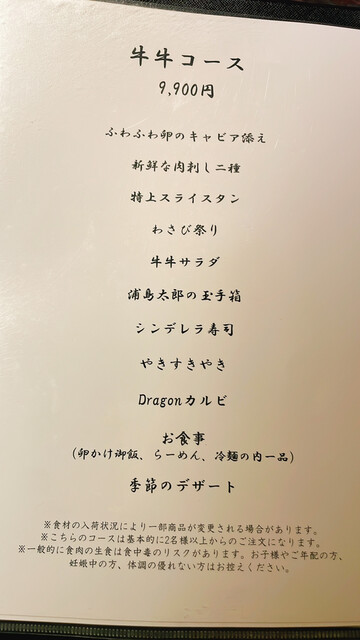 牛牛コース
9,900円
ふわふわ卵のキャビア添え
新鮮な肉刺し二種
特上スライスタン
わさび祭り
牛牛サラダ
浦島太郎の玉手箱
シンデレラ寿司
やきすきやき
Dragonカルビ
お食事
(卵かけ御飯、らーめん、冷麺の内一品)
季節のデザート
※食材の入荷状況により一部商品が変更される場合があります。
※こちらのコースは基本的に2名様以上からのご注文になります。
※一般的に食肉の生食は食中毒のリスクがあります。お子様やご年配の方、
妊娠中の方、体調の優れない方はお控えください。